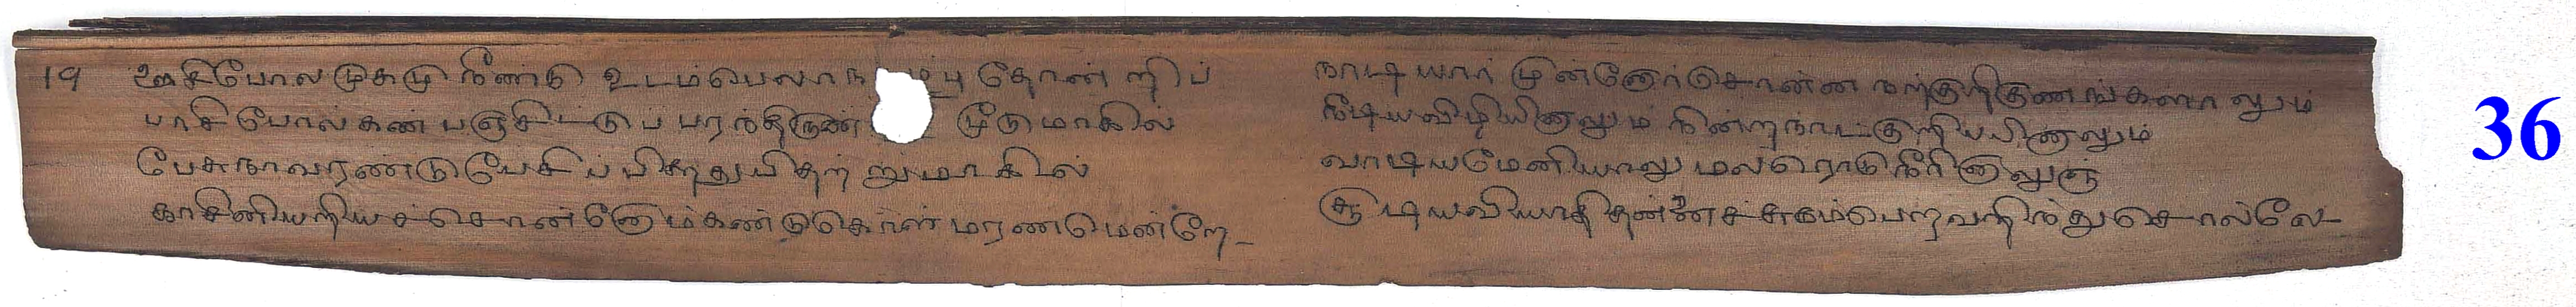 19 ஊசிபோல முகமு நீண்டு உடம்பெலாந ம்பு தோன்றிப்
பாசிபோல் கண் பஞ்சிட்டுப் பரந்திருண் மூடுமாகில்
பேசுநாவரண்டு பேசிப் பிசுது பிதற்றுமாகில்
காசினியறியச் சொன்னோம் கண்டுகொள் மரணமென்றே
நாடியார் முன்னோர் சொன்ன நற்குறிகுணங்களாலும்
நீடியவிழியினாலும் நின்றநாட்குறியினாலும்
வாடியமேனியாலு மலரொடு நீரினாலுஞ்
சூடியவியாதி தன்னைச் சுகம்பெறவறிந்து சொல்லே
36